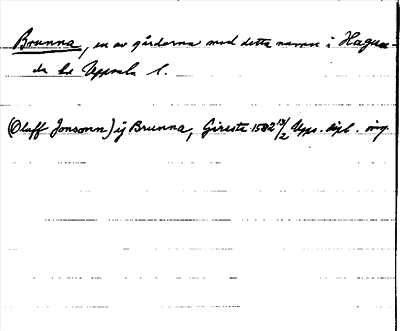 Brunna, en av gårdarna med detta namn i Hagun-
da hd Uppsala l.
(Oluff Jonsonn) ij Brunna, Gireste 1582 13/2 Upps. dipl. orig.